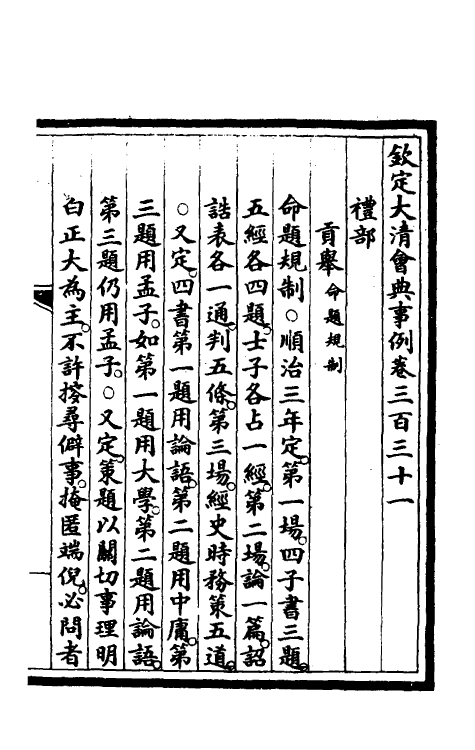 欽定大清會典事例卷三百三十一
禮部
貢舉命題規制
命題規制○順治三年定。第一場。四子書三題。
五經各四題。士子各占一經。第二場。論一篇。詔
誥表各一通。判五條。第三場。經史時務策五道。
○又定。四書第一題用論語。第二題用中庸。第
三題用孟子。如第一題用大學。第二題用論語。
第三題仍用孟子。○又定。策題以關切事理明
白正大為主。不許搜尋僻事。掩匿端倪。必問者